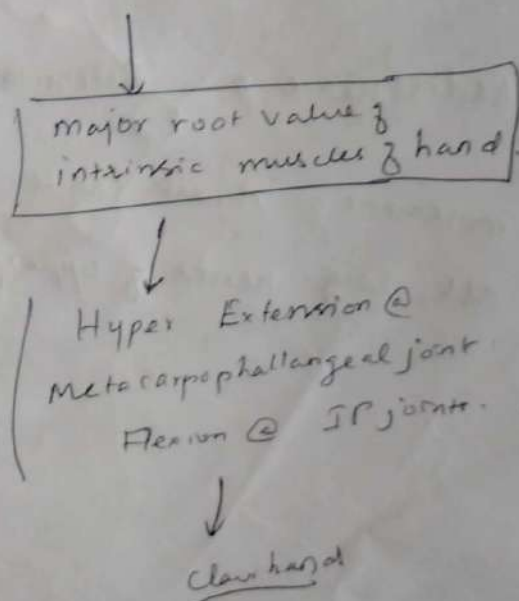 Major root value of
intrinsic muscles of hand.
Hyper Extension @
Metacarpophallangeal joint
Flexion @ IP joints.
Claw hand